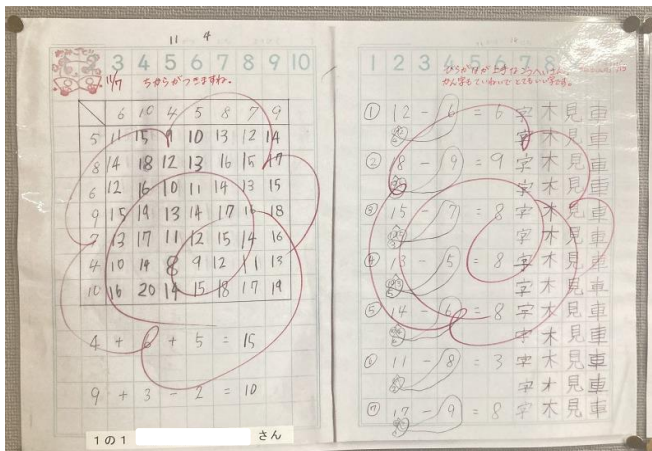 11 4
3 4 5 6 7 8 9 10
11/7 ちからがつきますね。
6 10 4 5 8 7 9
5 11 15 9 10 13 12 14
8 14 18 12 13 16 15 17
6 12 16 10 11 14 13 15
9 15 19 13 14 17 16 18
7 13 17 11 12 15 14 16
4 10 14 8 9 12 11 13
10 16 20 14 15 18 17 19
4 + 6 + 5 = 15
9 + 3 - 2 = 10
1の1 さん
1 2 3 4 5 6 7 8
ひらがなが上手な
かん字もていねいで とてもいい字です。
① 12 - 6 = 6 字 木 見 車
字 木 見 車
② 18 - 9 = 9 字 木 見 車
字 木 見 車
③ 15 - 7 = 8 字 木 見 車
字 木 見 車
④ 13 - 5 = 8 字 木 見 車
字 木 見 車
⑤ 14 - 6 = 8 字 木 見 車
字 木 見 車
⑥ 11 - 8 = 3 字 木 見 車
字 木 見 車
⑦ 17 - 9 = 8 字 木 見 車